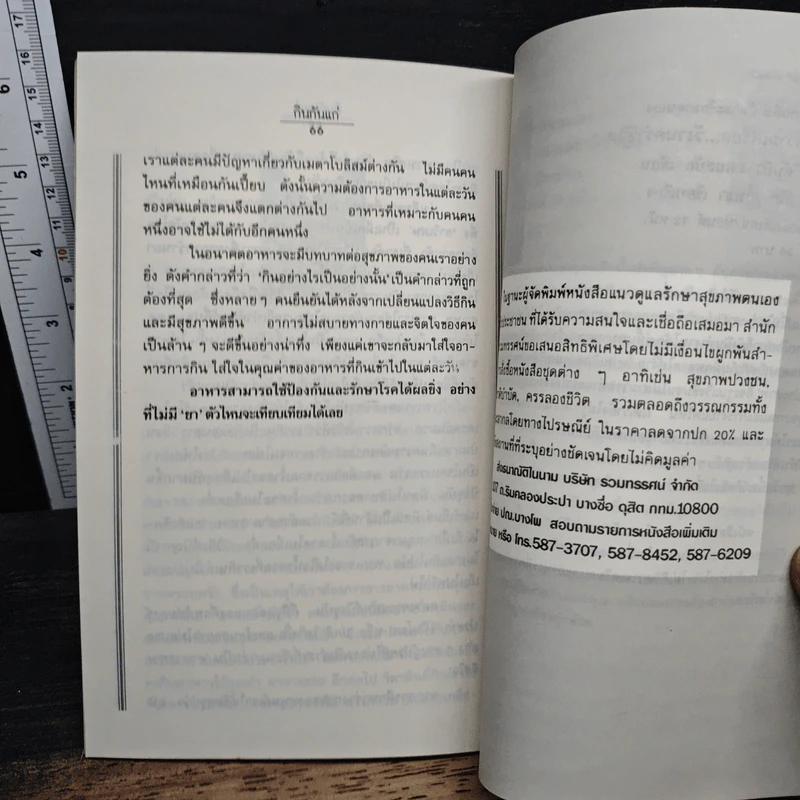 กินกันแก่
66
เราแต่ละคนมีปัญหาเกี่ยวกับเมตาโบลิสม์ต่างกัน ไม่มีคนคน
ไหนที่เหมือนกันเปี๊ยบ ดังนั้นความต้องการอาหารในแต่ละวัน
ของคนแต่ละคนจึงแตกต่างกันไป อาหารที่เหมาะกับคนคน
หนึ่งอาจใช้ไม่ได้กับอีกคนหนึ่ง
ในอนาคตอาหารจะมีบทบาทต่อสุขภาพของคนเราอย่าง
ยิ่ง ดังคำกล่าวที่ว่า 'กินอย่างไรเป็นอย่างนั้น' เป็นคำกล่าวที่ถูก
ต้องที่สุด ซึ่งหลายๆ คนยืนยันได้หลังจากเปลี่ยนแปลงวิธีกิน
และมีสุขภาพดีขึ้น อาการไม่สบายทางกายและจิตใจของคน
เป็นล้าน ๆ จะดีขึ้นอย่างน่าทึ่ง เพียงแค่เขาจะกลับมาใส่ใจอา-
หารการกิน ใส่ใจในคุณค่าของอาหารที่กินเข้าไปในแต่ละวัน
อาหารสามารถใช้ป้องกันและรักษาโรคได้ผลยิ่ง อย่าง
ที่ไม่มี 'ยา' ตัวไหนจะเทียบเทียมได้เลย
ในฐานะผู้จัดพิมพ์หนังสือแนวดูแลรักษาสุขภาพตนเอง
ประชาชน ที่ได้รับความสนใจและเชื่อถือเสมอมา สำนัก
รวมทรรศน์ขอเสนอสิทธิพิเศษโดยไม่มีเงื่อนไขผูกพันสำ-
สั่งซื้อหนังสือชุดต่าง ๆ อาทิเช่น สุขภาพปวงชน,
บำบัด, ครรลองชีวิต รวมตลอดถึงวรรณกรรมทั้ง
สากลโดยทางไปรษณีย์ ในราคาลดจากปก 20% และ
สถานที่ที่ระบุอย่างชัดเจนโดยไม่คิดมูลค่า
ส่งธนาณัติในนาม บริษัท รวมทรรศน์ จำกัด
ถ.ริมคลองประปา บางซื่อ ดุสิต กทม.10800
จ่าย ปณ.บางโพ สอบถามรายการหนังสือเพิ่มเติม
หรือ โทร.587-3707, 587-8452, 587-6209